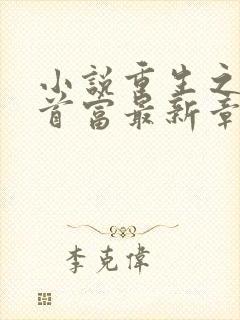 小説重生之
首富最新章
李克偉